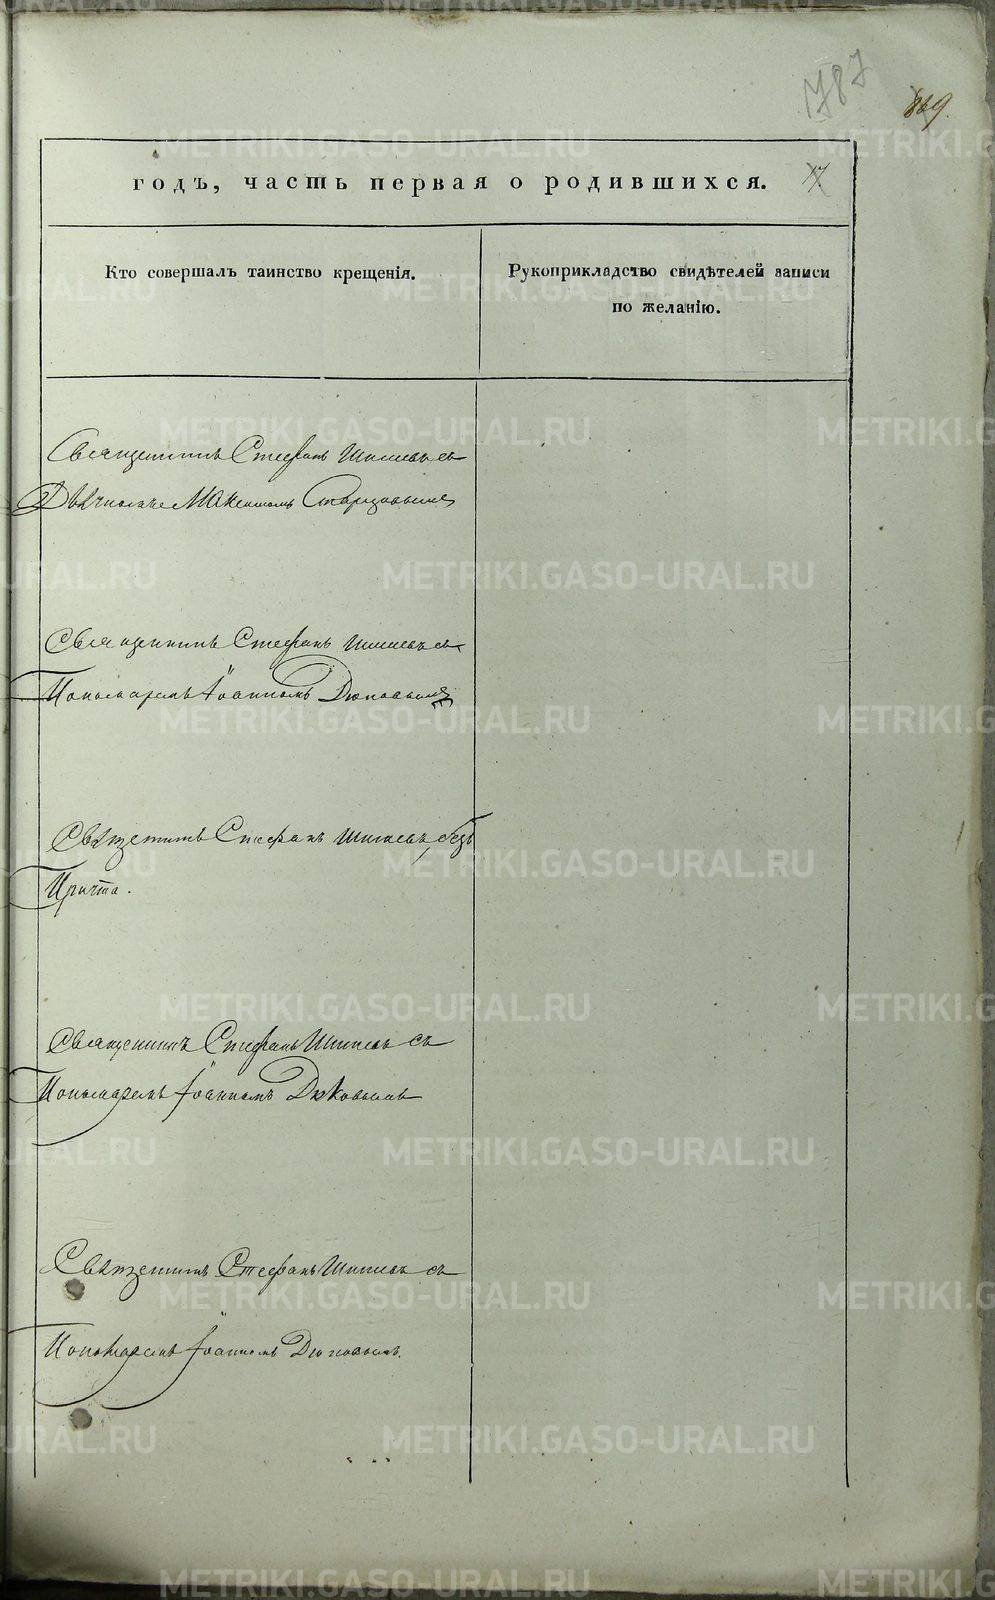 1787
869.
годъ, часть первая о родившихся.
17.
Кто совершалъ таинство крещенія.
Рукоприкладство свидѣтелей записи
по желанію.
Священникъ Стефанъ съ
Дьячькомъ Старцовымъ
Священникъ Стефанъ съ
Пономаремъ Іоанномъ Дюковымъ
Священникъ Стефанъ безъ
Причта.
Священникъ Стефанъ съ
Пономаремъ Іоанномъ Дюковымъ
Священникъ Стефанъ съ
Пономаремъ Іоанномъ Дюковымъ.
METRIKI.GASO-URAL.RU